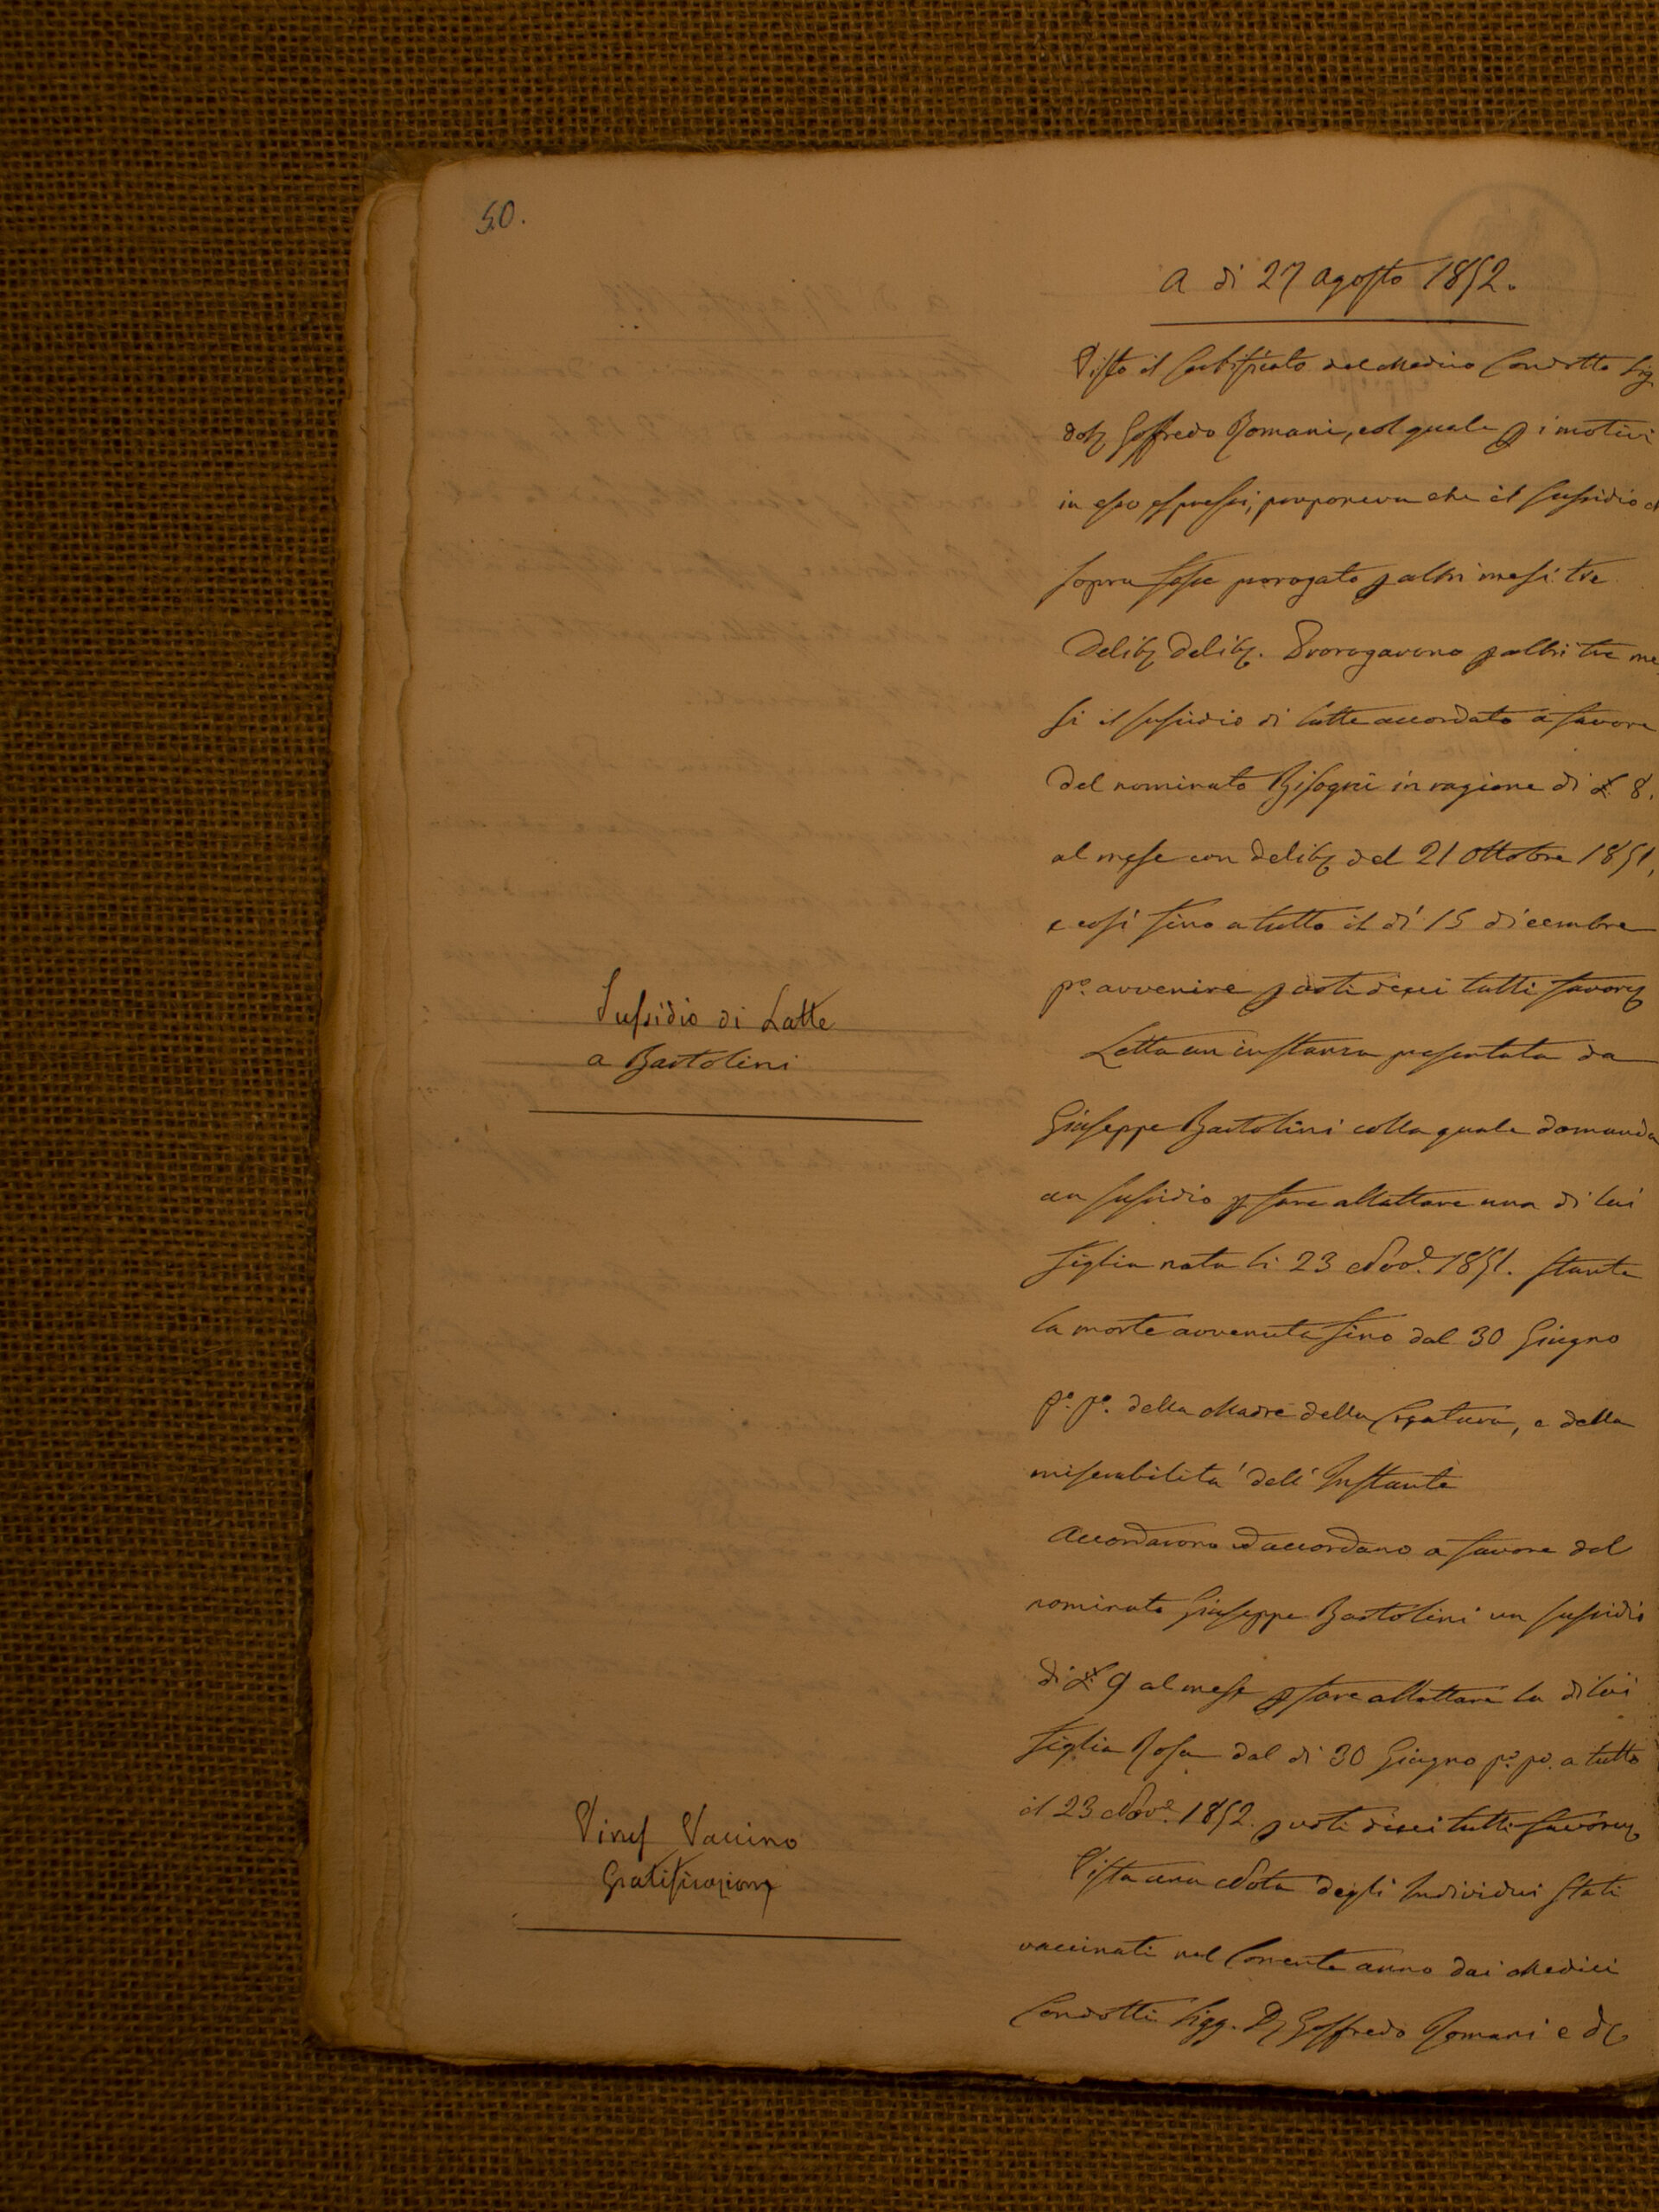 50.
A dì 27 Agosto 1852.
Visto il Certificato del Medico Condotto Sig.
Dott. Goffredo Romani, col quale p i motivi
in esso espressi, proponeva che il sussidio di
sopra fosse prorogato p altri mesi tre
Delib. Delib. Prorogarono p altri tre me
si il sussidio di latte accordato a favore
del nominato Bisogni in ragione di £ 8.
al mese con Delib. del 21 Ottobre 1851,
e così fino a tutto il dì 15 dicembre
po. avvenire p voti dieci tutti favor.
Sussidio di Latte
a Bartolini
Letta un instanza presentata da
Giuseppe Bartolini colla quale domanda
un sussidio p fare allattare una di lui
figlia nata li 23 Nove. 1851. stante
la morte avvenuta fino dal 30 Giugno
po. po. della Madre della Creatura, e della
miserabilità dell' Instante
Accordarono ed accordano a favore del
nominato Giuseppe Bartolini un sussidio
di £ 9 al mese p fare allattare la di lui
figlia Rosa dal dì 30 Giugno po. po. a tutto
il 23 Nove. 1852. p voti dieci tutti favor.
Vaccino
Gratificazione
Vista una Nota degli Individui stati
vaccinati nel Corrente anno dai Medici
Condotti Sigg. D. Goffredo Romani e D.